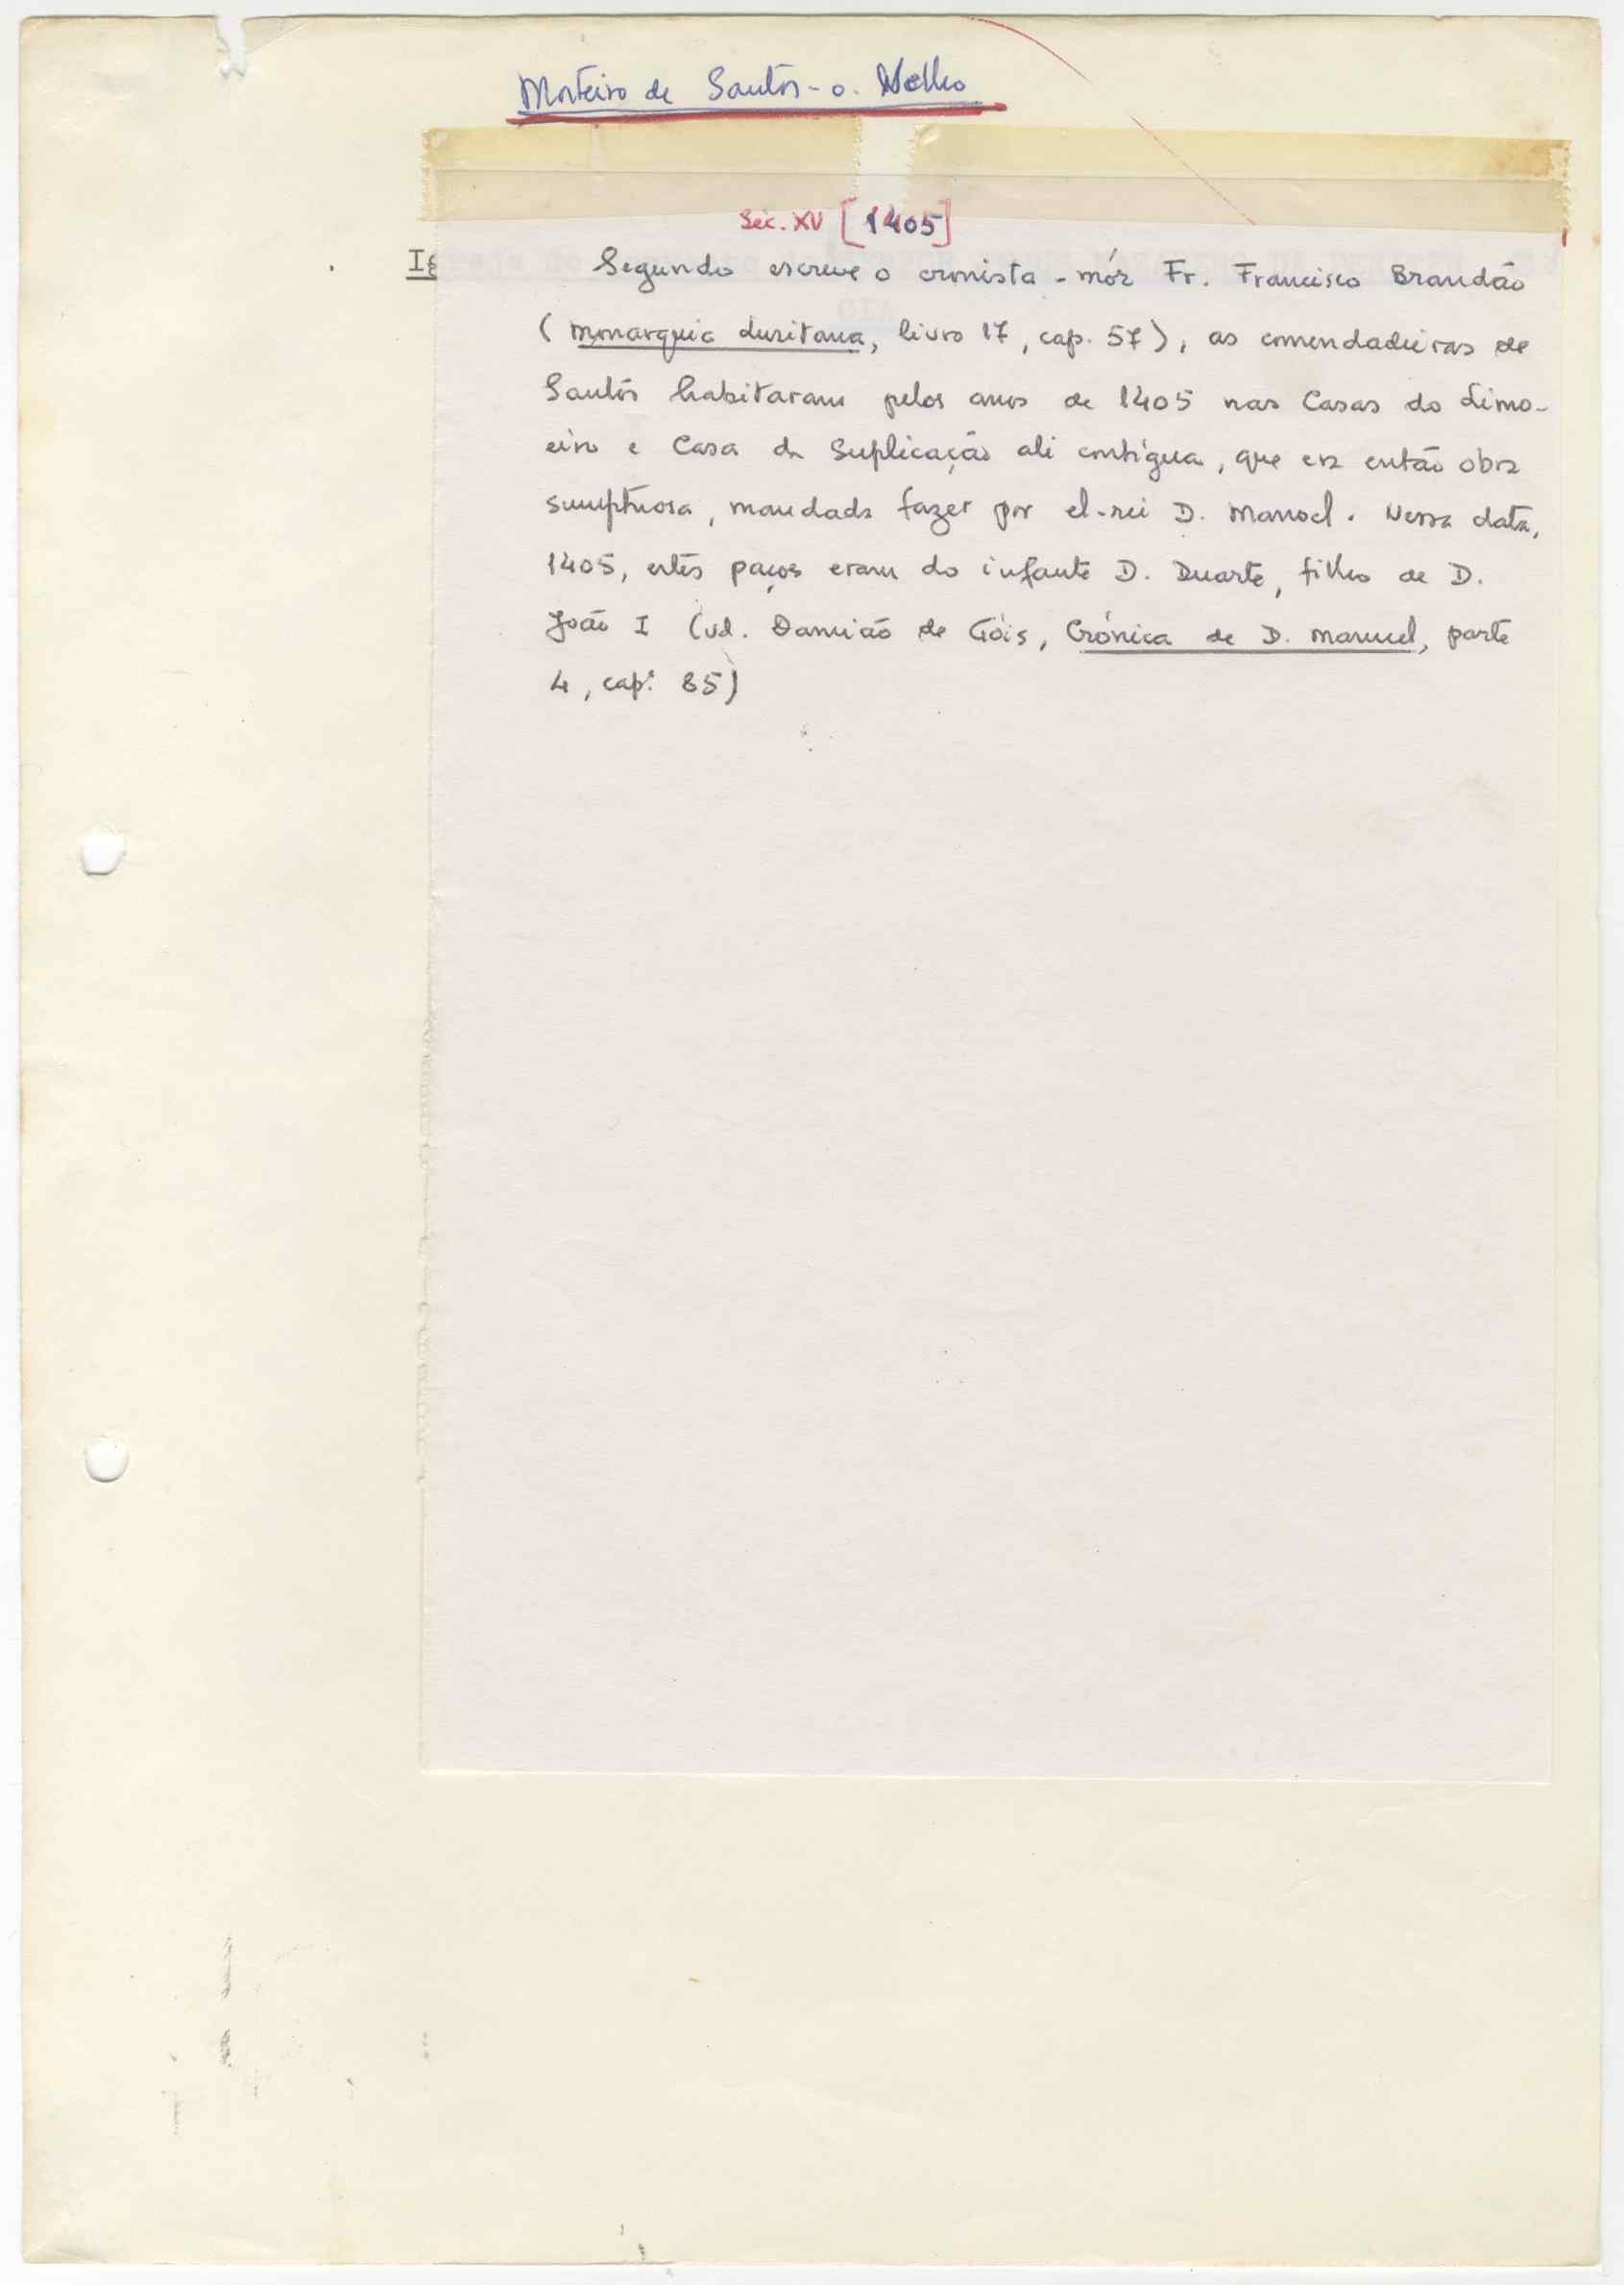 Mosteiro de Santos-o-Velho
Séc. XV [1405]
Ig
Segundo escreve o cronista-mór Fr. Francisco Brandão
(Monarquia Lusitana, livro 17, cap. 57), as comendadeiras de
Santos habitaram pelos anos de 1405 nas Casas do Limo-
eiro e Casa da Suplicação ali contígua, que era então obra
sumptuosa, mandada fazer por el-rei D. Manoel. Nessa data,
1405, estes paços eram do infante D. Duarte, filho de D.
João I (vd. Damião de Góis, Crónica de D. Manuel, parte
4, cap. 85)